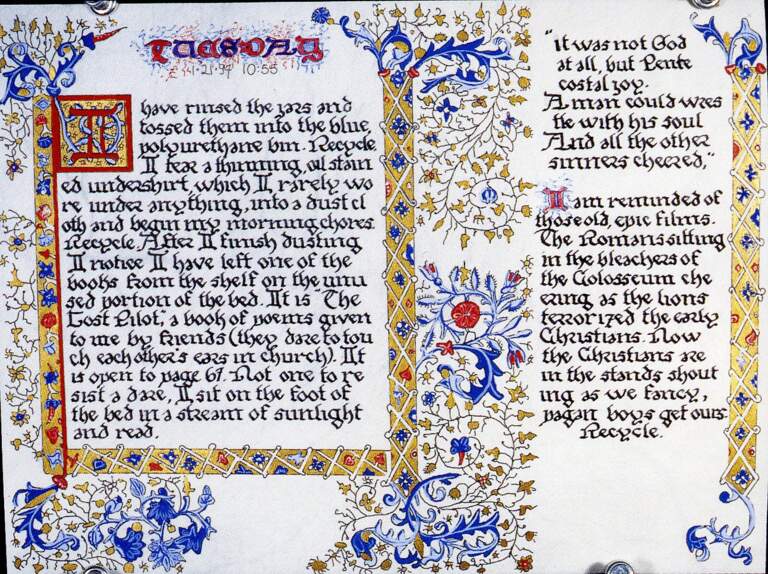 TUESDAY
4-21-97 10:55
I have rinsed the jars and
tossed them into the blue,
polyurethane bin. Recycle.
I tear a thinning, oil stain
ed undershirt, which I rarely wo
re under anything, into a dust cl
oth and begin my morning chores.
Recycle. After I finish dusting
I notice I have left one of the
books from the shelf on the unu
sed portion of the bed. It is "The
Lost Pilot", a book of poems given
to me by friends (they dare to tou
ch each other's ears in church). It
is open to page 61. Not one to re
sist a dare, I sit on the foot of
the bed in a stream of sunlight
and read.
"it was not God
at all, but Pente
costal joy.
A man could wres
tle with his soul
And all the other
sinners cheered,"
I am reminded of
those old, epic films.
The Romans sitting
in the bleachers of
the Colosseum che
ering as the lions
terrorized the early
Christians. Now
the Christians are
in the stands shout
ing as we fancy,
pagan boys get ours.
Recycle.